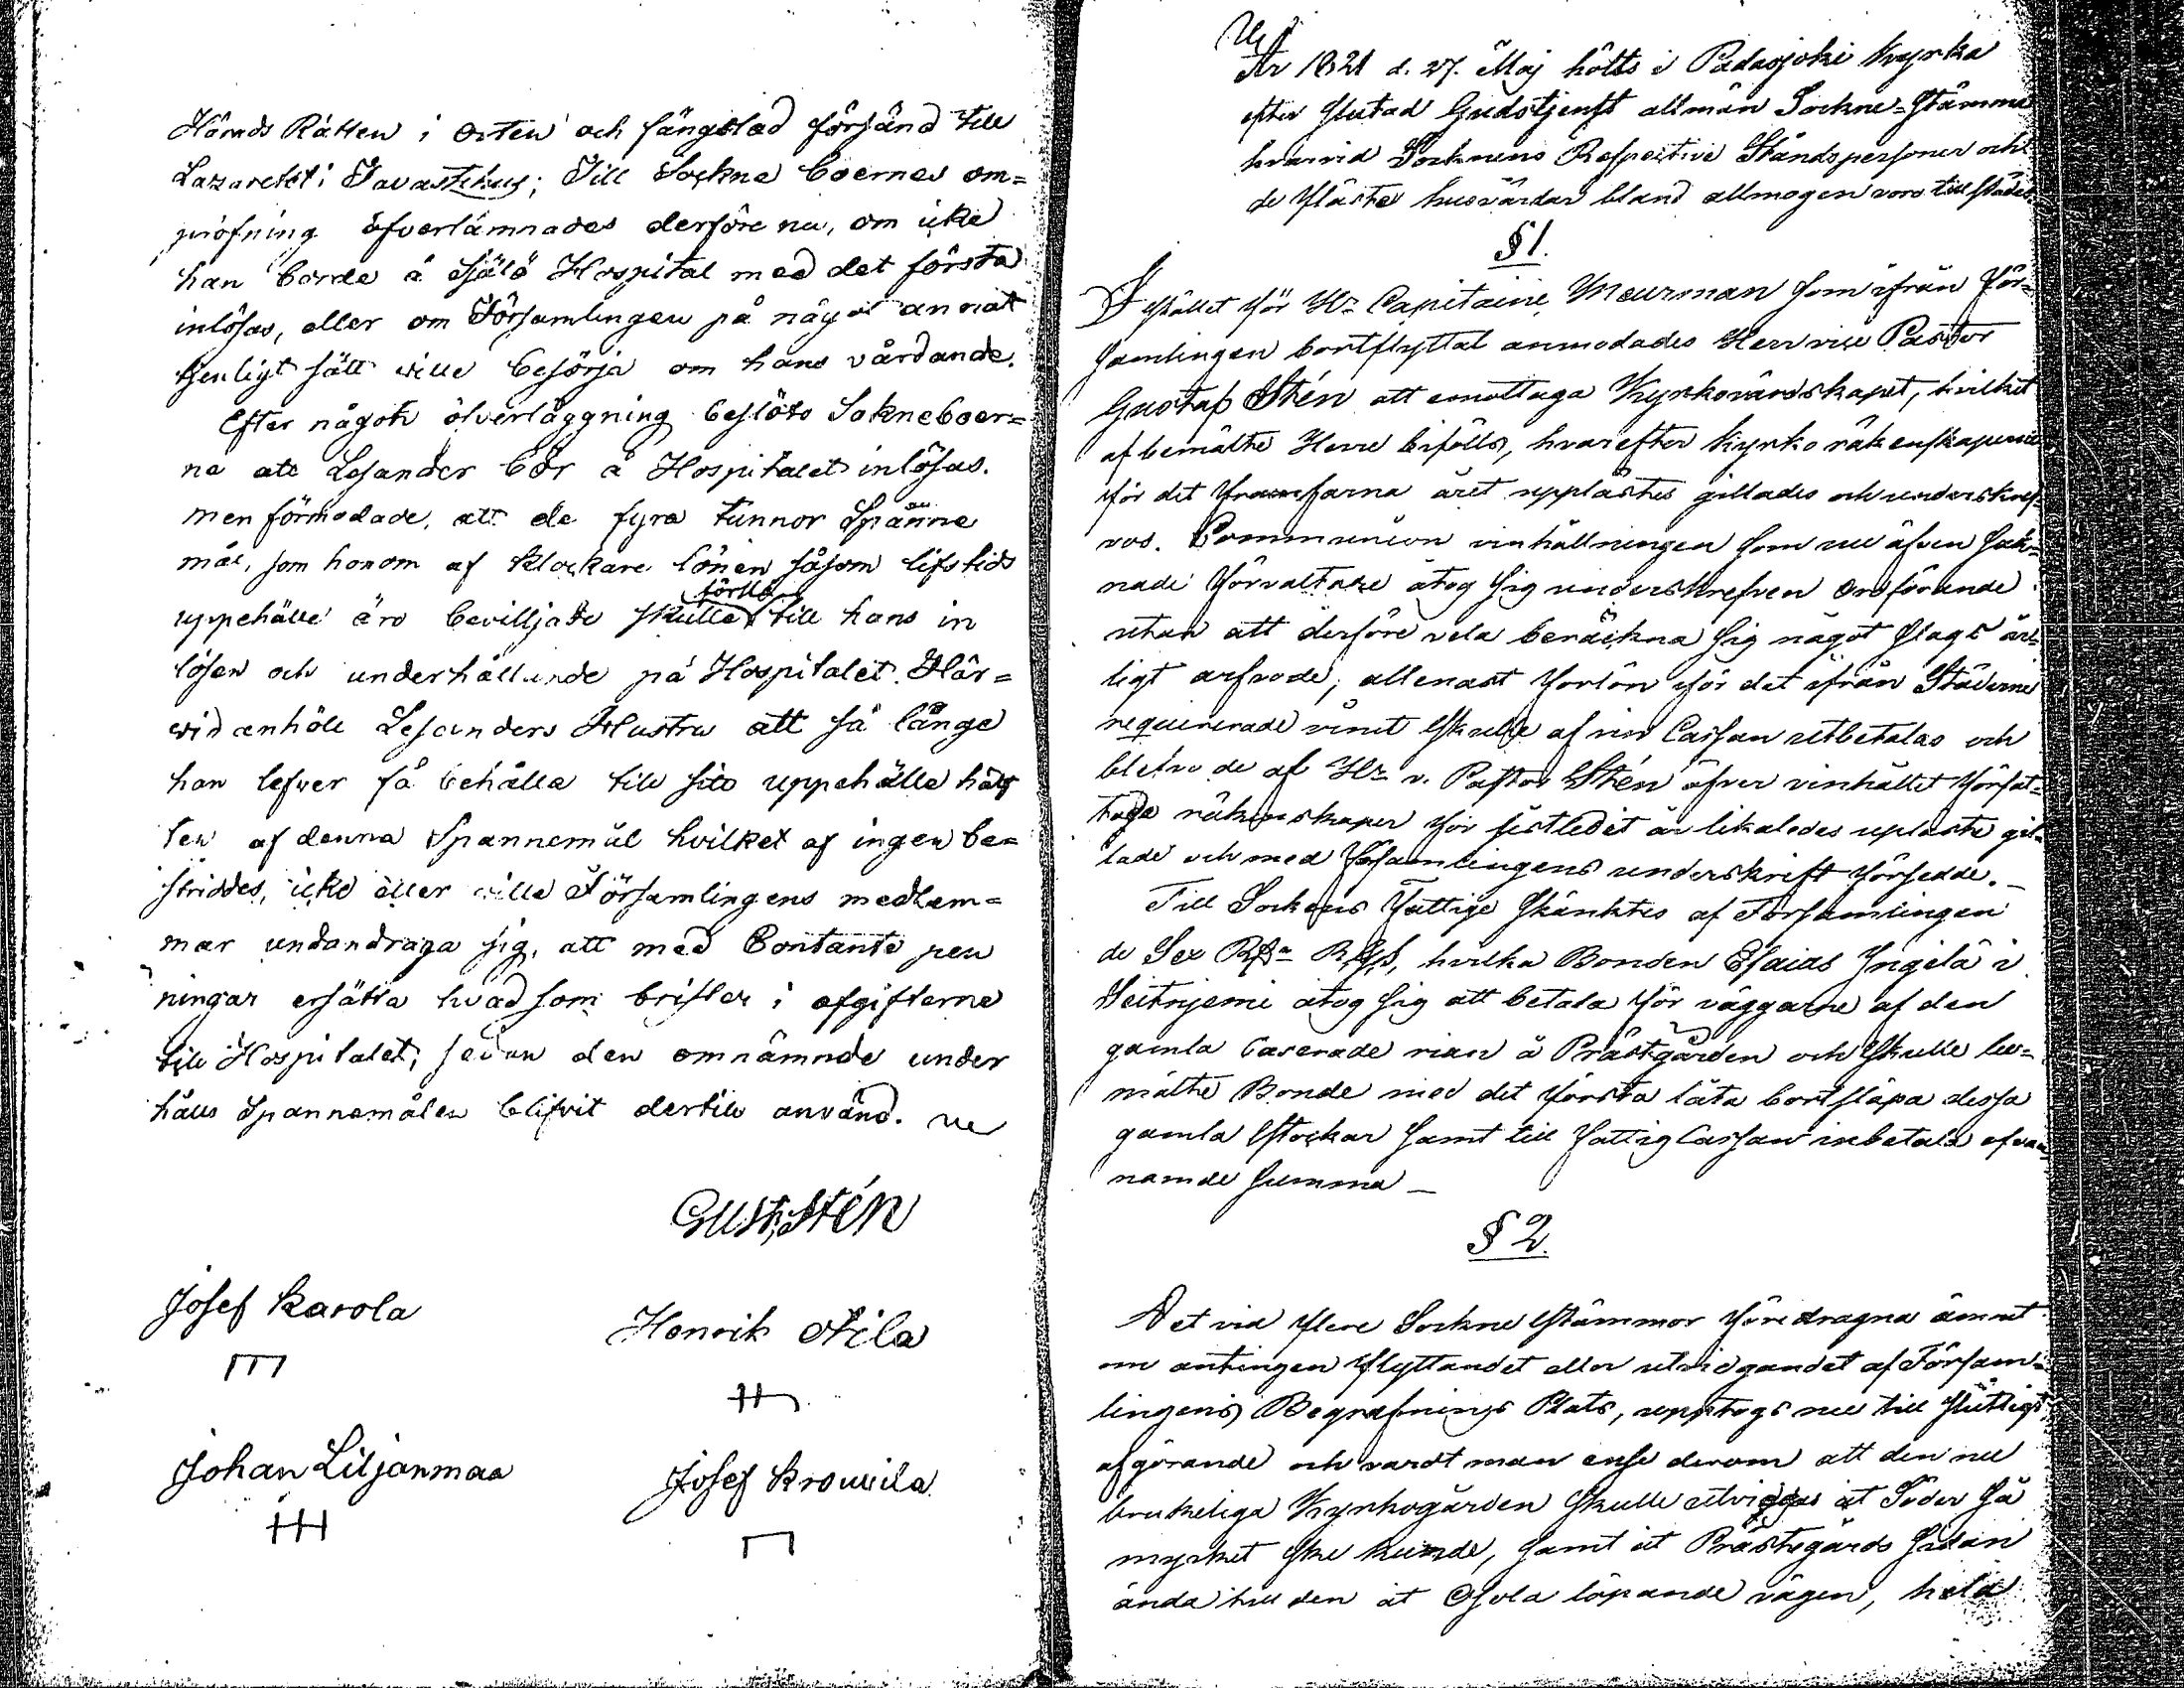 Härads Rätten i Orten och fängslad försänd till
Lazarettet i Tavastehus; Till Sockne boernes om=
pröfning öfverlämnades derföre nu, om icke
han borde å Själö Hospital med det första
inlösas, eller om Församlingen på något annat
tjenligt sätt wille besörja om hans vårdande.
Efter någon öfverläggning beslöto Sokneboer=
na att Lesander bör å Hospitalet inlösas.
men förmodade, att de fyra tunnor Spanne
mål, som honom af klockare lönen såsom lifstids
uppehälle äro bevilljade skulle förslå till hans in
lösen och underhållande på Hospitalet. Här=
wid anhöll Lesanders Hustru att så länge
han lefver få behålla till sitt uppehälle hälf
ten af denna Spannemål hvilket af ingen be=
striddes, icke eller wille Församlingens medlem=
mar undandraga sig, att med Contante pen
ningar ersätta hvad som brister i afgifterne
till Hospitalet, sedan den omnämnde under
hålls Spannemålen blifvit dertill använd.
Gust. Stén
Josef Karola
Henrik Nila
Johan Liljanmaa
Josef Krouvila
År 1821 d. 27. Maj hölts i Padasjoki Kyrka
efter slutad Gudstjenst allmän Sockne=Stämma
hvarvid Socknens Respective Ståndspersoner och
de fläste husvärdar bland allmogen voro tillstädes.
§ 1.
I stället för Hr Capitaine Meurman som ifrån För=
samlingen bortflyttat anmodades Herr vice Pastor
Gustaf Stén att emottaga Kyrkovärdskapet, hvilket
af bemälte Herre bifölls, hvarefter Kyrko räkenskaperne
för det framfarna året upplästes gillades och underskref=
vos. Communion vinhållningen som nu äfven sak=
nade förvaltare åtog sig underskrefven Ordförande
utan att derföre vela beräckna sig något slags år=
ligt arfvode, allenast forlön för det ifrån Städerne
requirerade vinet skulle af vin Cassan utbetalas och
blefvo de af Hr v. Pastor Stén öfver vinhållet förfat=
tade räkenskaper för sistledit år likaledes upläste gil=
lade och med Församlingens underskrift försedde. _
Till Sockens Fattige skänktes af Församlingen
de Sex Rdr Rgs, hvilka Bonden Esaias Yngilä i
Seitniemi åtog sig att betala för väggarne af den
gamla Caserade rian å Prästgården och skulle be=
mälte Bonde med det första låta bortsläpa dessa
gamla stockar samt till Fattig Cassan inbetala ofvan
namde summa _
§ 2.
Det vid flere Sockne stämmor föredragna ämnet
om antingen flyttandet eller utvidgandet af Försam=
lingens Begrafnings Plats, upptogs nu till slutligt
afgörande och vardt man ense derom att den nu
brukeliga Kyrkogården skulle utvidgas åt Söder så
mycket ske kunde, samt åt Prästegårds sidan
ända till den åt Osola löpande vägen, hela